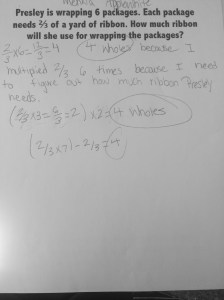 Presley is wrapping 6 packages. Each package
needs ⅔ of a yard of ribbon. How much ribbon
will she use for wrapping the packages?
2/3 x6=12/3=4 (4 wholes) because I
multiplied 2/3 6 times because I need
to figure out how much ribbon Presley
needs.
(2/3 x3=6/3=2) x2=(4 wholes
(2/3 x7) - 2/3 = 4